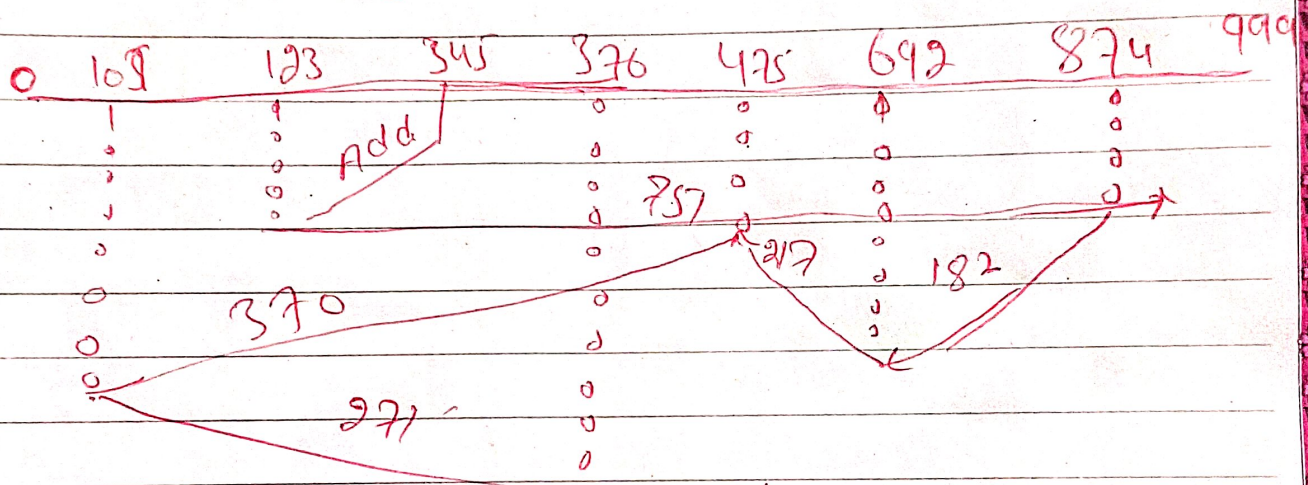 0 105 123 345 376 475 692 874 999
Add
757
217
182
370
271